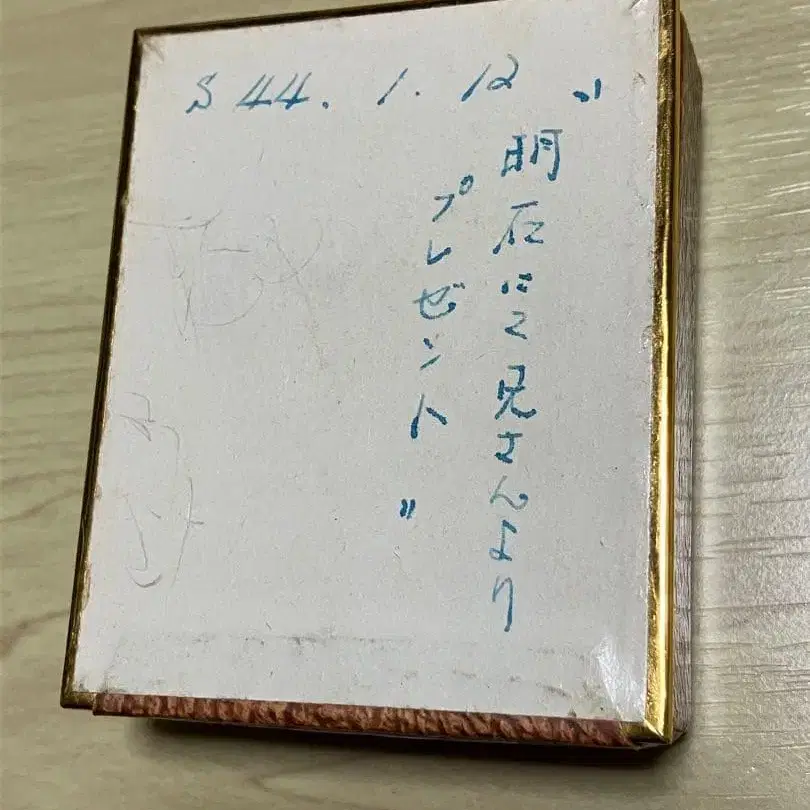 S 44. 1. 12
〃明石にて兄さんより
プレゼント〃